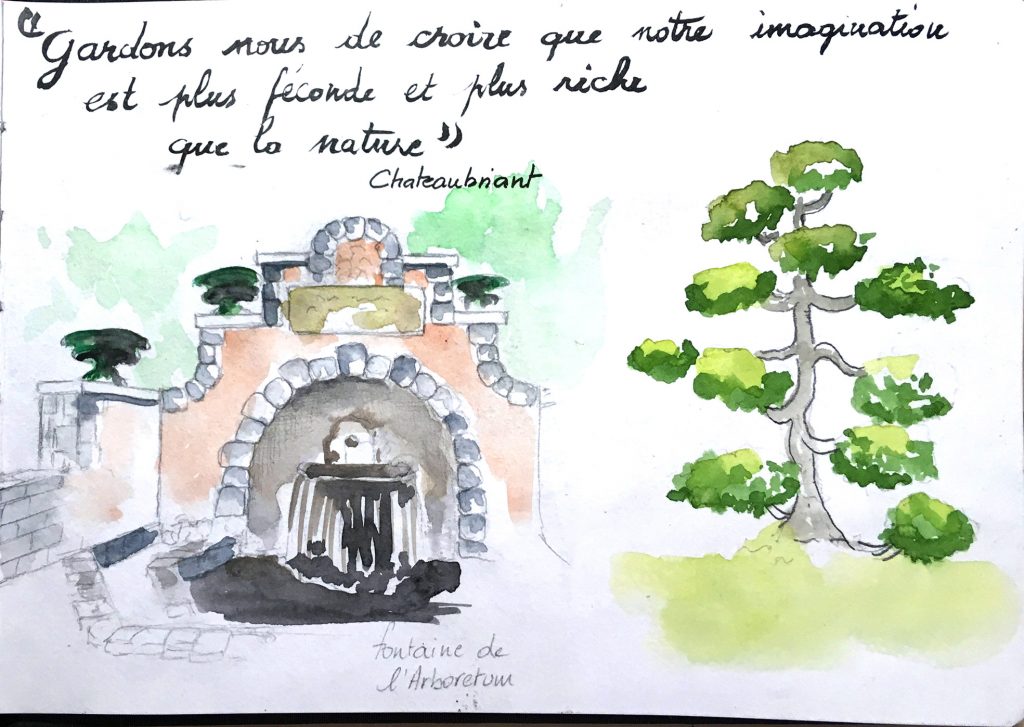 “Gardons nous de croire que notre imagination
est plus féconde et plus riche
que la nature”
Chateaubriant
fontaine de
l'Arboretum